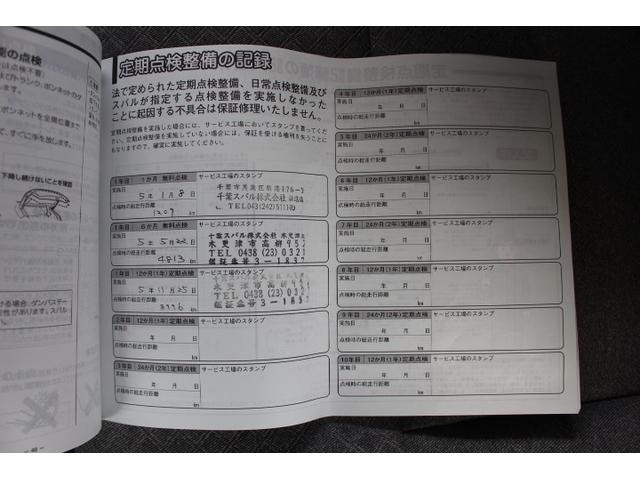 能の点検
は点検不要)
及びトランク、ボンネットのダ
ボンネットを全開位置まで
て、すぐに手を放します。
下降し続けないことを確認
ける場合、ダンパステー
性があります。スバル
定期点検整備の記録
法で定められた定期点検整備、日常点検整備及び
スバルが指定する点検整備を実施しなかった
ことに起因する不具合は保証修理いたしません。
定期点検整備を実施した場合には、サービス工場においてスタンプを貰ってくだ
さい。定期点検整備を実施していない場合には、保証を受ける権利を失うことに
もなりますので、確実に実施してください。
1年目 1か月 無料点検 サービス工場のスタンプ
実施日
5年 1月 8日
点検時の総走行距離
1209 km
千葉スバル株式会社
TEL043(242)5111
1年目 6か月 無料点検 サービス工場のスタンプ
実施日
5年 5月 22日
点検時の総走行距離
4813 km
千葉スバル株式会社 木更津
木更津市高柳952
TEL 0438 (23) 0321
認証番号3-1832
1年目 12か月(1年)定期点検 サービス工場のスタンプ
実施日
5年 11月 25日
点検時の総走行距離
km
木更津市高柳95
TEL 0438 (23) 032
認証番号3-183
2年目 12か月(1年)定期点検 サービス工場のスタンプ
実施日
年 月 日
点検時の総走行距離
km
3年目 24か月(2年)定期点検 サービス工場のスタンプ
実施日
年 月 日
点検時の総走行距離
km
4年目 12か月(1年)定期点検 サービス工場のスタンプ
実施日
年 月 日
点検時の総走行距離
km
5年目 24か月(2年)定期点検 サービス工場のスタンプ
実施日
年 月 日
点検時の総走行距離
km
6年目 12か月(1年)定期点検 サービス工場のスタンプ
実施日
年 月 日
点検時の総走行距離
km
7年目 24か月(2年)定期点検 サービス工場のスタンプ
実施日
年 月 日
点検時の総走行距離
km
8年目 12か月(1年)定期点検 サービス工場のスタンプ
実施日
年 月 日
点検時の総走行距離
km
9年目 24か月(2年)定期点検 サービス工場のスタンプ
実施日
年 月 日
点検時の総走行距離
km
10年目 12か月(1年)定期点検 サービス工場のスタンプ
実施日
年 月 日
点検時の総走行距離
km